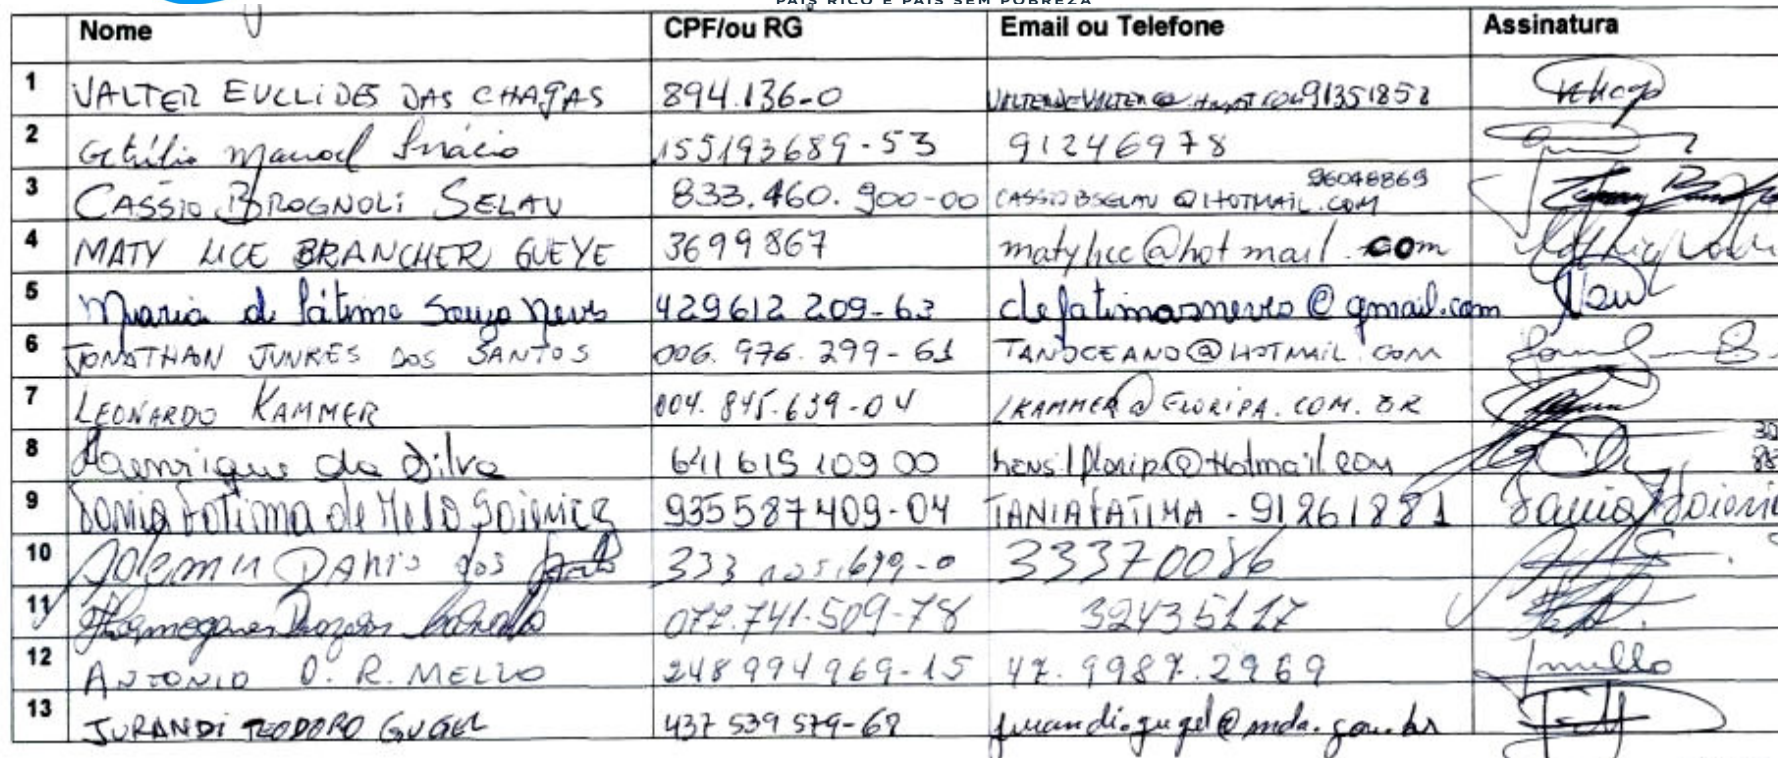 PAÍS RICO É PAÍS SEM POBREZA
Nome CPF/ou RG Email ou Telefone Assinatura
1 VALTER EUCLIDES DAS CHAGAS 894.136-0 91351852
2 Getúlio Manoel Inácio 155193689-53 91246978
3 CASSIO BROGNOLI SELAU 833.460.900-00 CASSIOBSELAU@HOTMAIL.COM 96048869
4 MATY LICE BRANCHER GUEYE 3699867 matylice@hotmail.com
5 Maria de Fátima Souza Neves 429612 209-63 defatimasneves@gmail.com
6 JONATHAN JUNKES DOS SANTOS 006.976.299-61 TANOCEANO@HOTMAIL.COM
7 LEONARDO KAMMER 004.845.639-04 LKAMMER@FLORIPA.COM.BR
8 Henrique da Silva 641 615 109 00 hensilfloripa@Hotmail.com
9 Tania Fatima de Melo 935587409-04 TANIAFATIMA - 91261881 Tania
10 dos 33370086
11 077.741.509-78 32435117
12 ANTONIO O. R. MELLO 248994969-15 47.9987.2969
13 JURANDI TEODORO GUGEL 437 539 579-68 jurandi.gugel@mda.gov.br